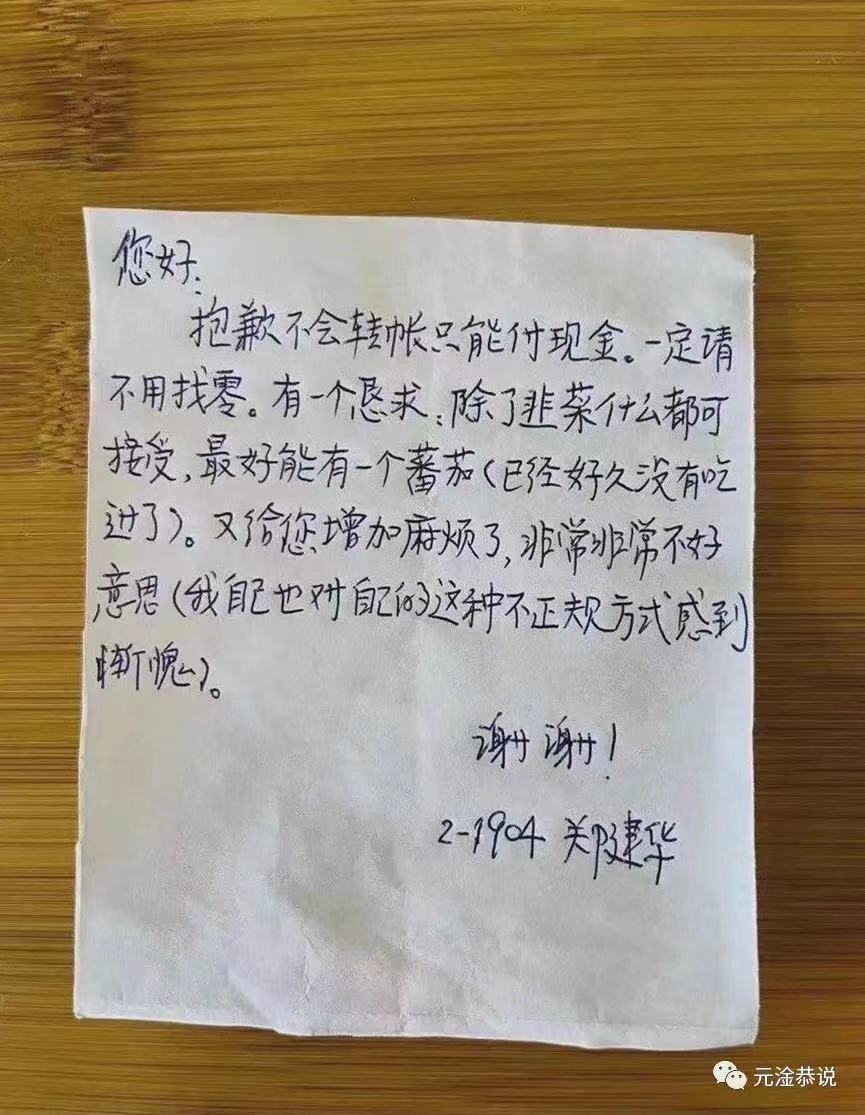 您好:
抱歉不会转帐只能付现金。一定请
不用找零。有一个恳求:除了韭菜什么都可
接受,最好能有一个蕃茄(已经好久没有吃
过了)。又给您增加麻烦了,非常非常不好
意思(我自己也对自己的这种不正规方式感到
惭愧)。
谢谢!
2-1904 郑建华
元淦恭说